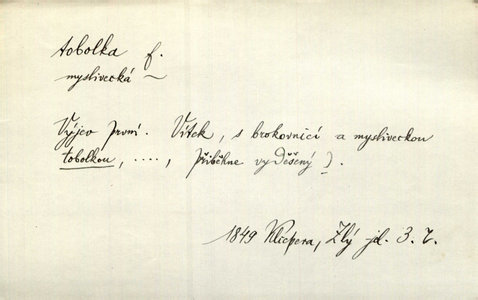 tobolka f.
myslivecká ~
Výjev první. Vítek, s brokovnicí a mysliveckou
tobolkou, ...., přiběhne vyděšený ).
1849 Klicpera, Zlý jel. 3. 7.